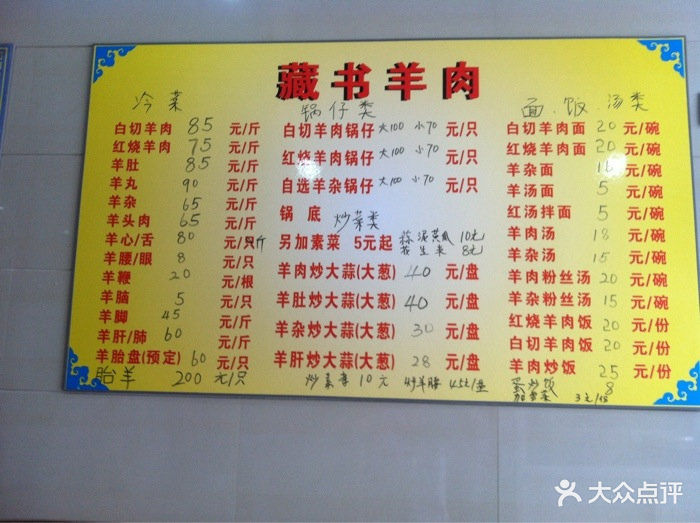 藏书羊肉
冷菜
白切羊肉 85 元/斤
红烧羊肉 75 元/斤
羊肚 85 元/斤
羊丸 90 元/斤
羊杂 65 元/斤
羊头肉 65 元/斤
羊心/舌 80 元/只斤
羊腰/眼 8 元/只
羊鞭 20 元/根
羊脑 5 元/只
羊脚 45 元/斤
羊肝/肺 60 元/斤
羊胎盘(预定) 60 元/只
胎羊 200 元/只
锅仔类
白切羊肉锅仔 大100 小70 元/只
红烧羊肉锅仔 大100 小70 元/只
自选羊杂锅仔 大100 小70 元/只
锅底 炒菜类
另加素菜 5元起 蒜泥黄瓜 10元
花生米 8元
羊肉炒大蒜(大葱) 40 元/盘
羊肚炒大蒜(大葱) 40 元/盘
羊杂炒大蒜(大葱) 30 元/盘
羊肝炒大蒜(大葱) 28 元/盘
炒素菜 10元 炒羊腰 45元/盘
面、饭、汤类
白切羊肉面 20 元/碗
红烧羊肉面 20 元/碗
羊杂面 16 元/碗
羊汤面 5 元/碗
红汤拌面 5 元/碗
羊肉汤 18 元/碗
羊杂汤 15 元/碗
羊肉粉丝汤 20 元/碗
羊杂粉丝汤 15 元/碗
红烧羊肉饭 20 元/份
白切羊肉饭 20 元/份
羊肉炒饭 25 元/份
蛋炒饭 8
加素菜 3元/份
大众点评